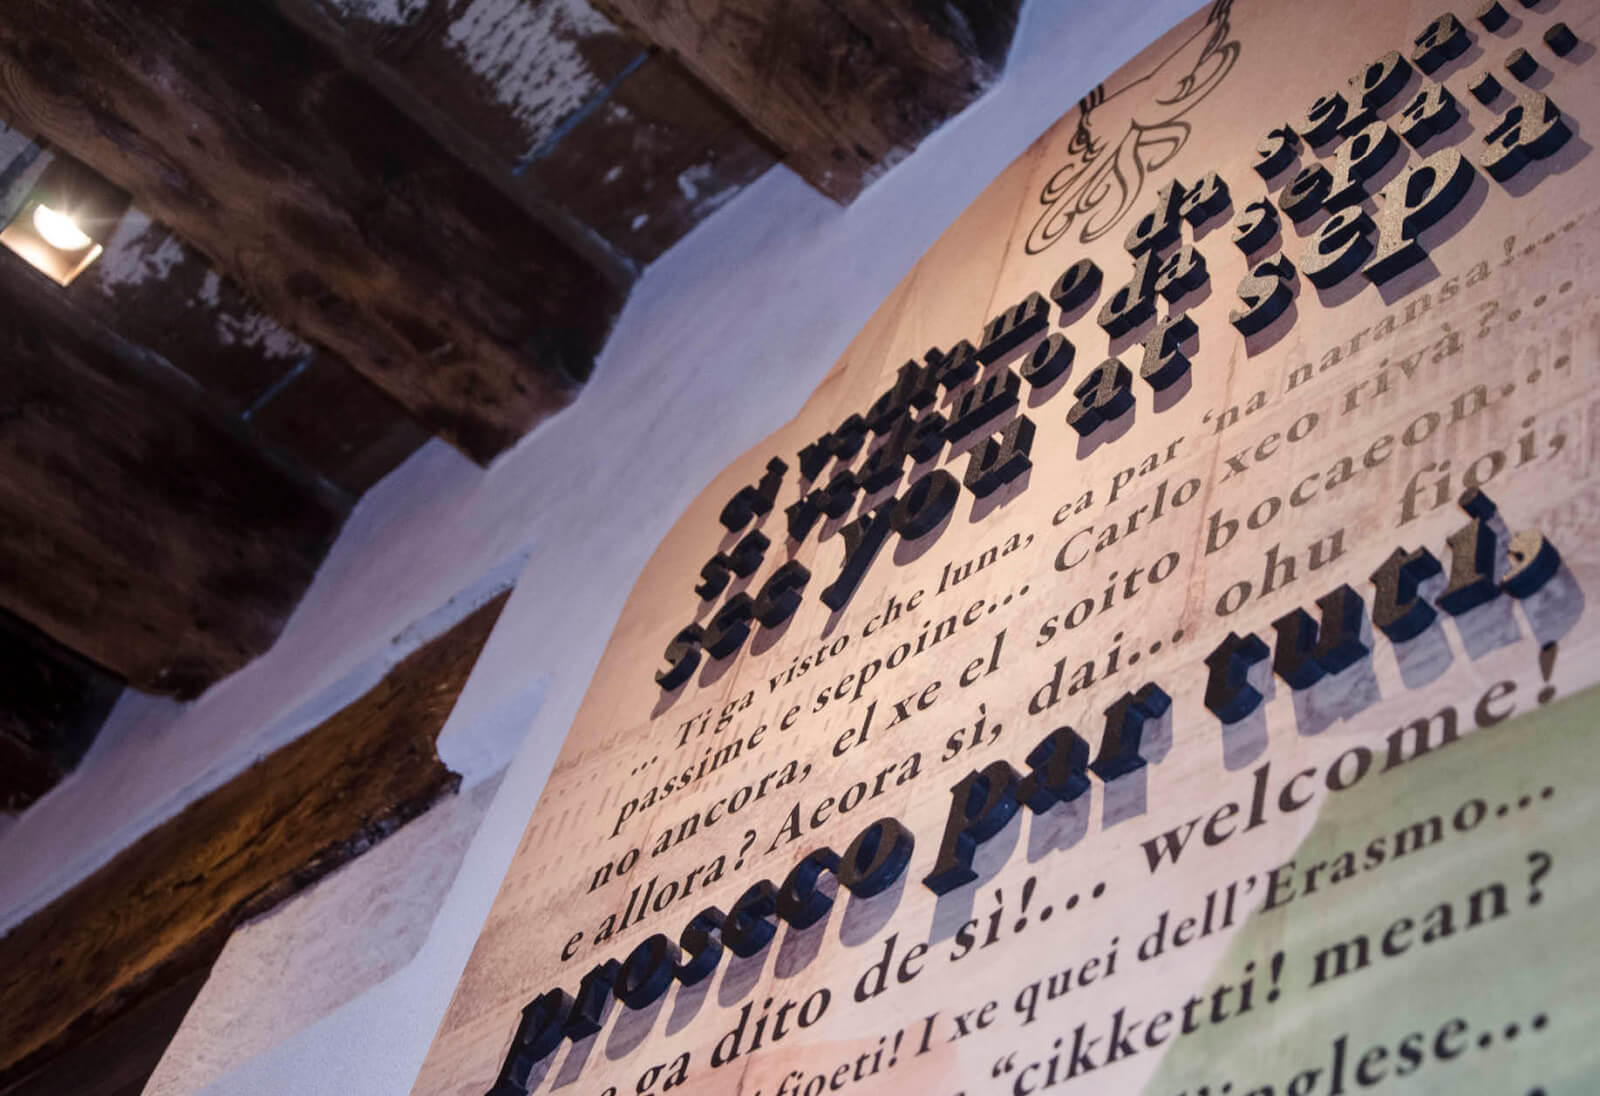 ci vediamo da sepa...
se vedemo da sepa...
see you at sepa
... Ti ga visto che luna, ea par ‘na naransa!...
passime e sepoine... Carlo xeo rivà?...
no ancora, el xe el soito bocaeon...
e allora? Aeora sì, dai... ohu fioi,
prosecco par tuti,
ga dito de sì!... welcome!
fioeti! I xe quei dell’Erasmo...
“cikketti! mean?
l’inglese...